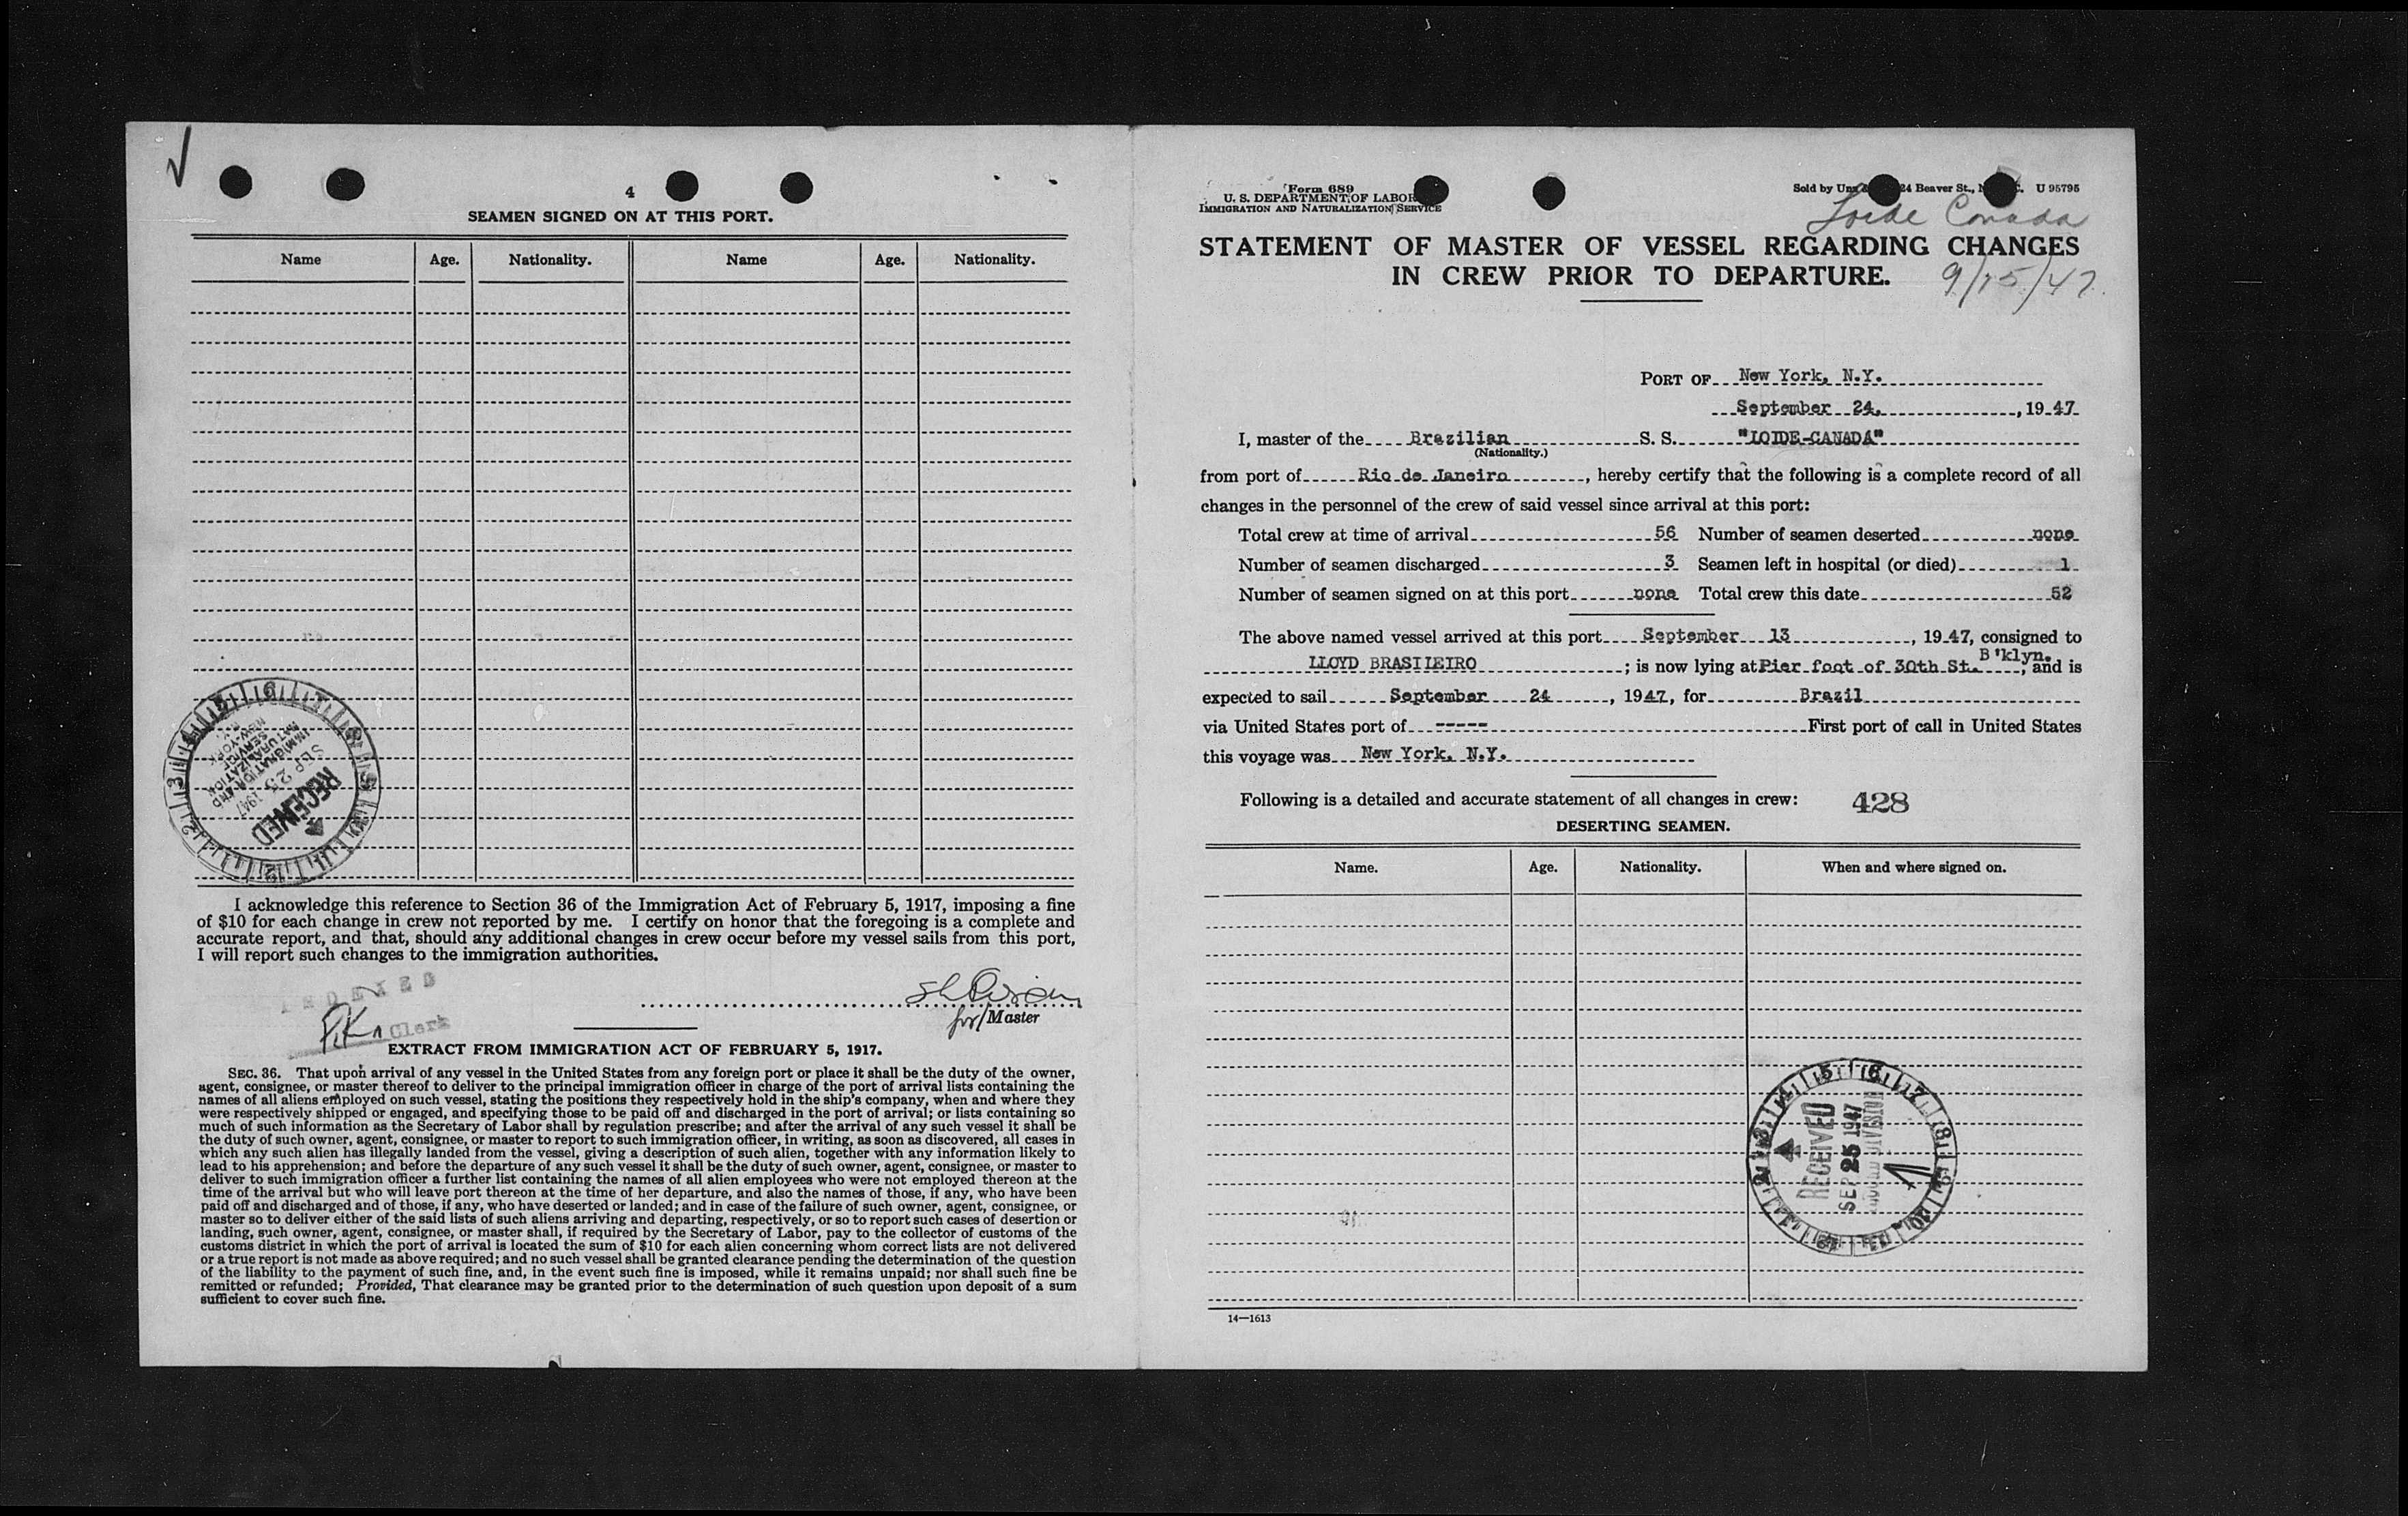 4
SEAMEN SIGNED ON AT THIS PORT.
Name Age. Nationality. Name Age. Nationality.
RECEIVED
SEP 25 1947
IMMIGRATION AND
NATURALIZATION
SERVICE
NEW YORK
I acknowledge this reference to Section 36 of the Immigration Act of February 5, 1917, imposing a fine
of $10 for each change in crew not reported by me. I certify on honor that the foregoing is a complete and
accurate report, and that, should any additional changes in crew occur before my vessel sails from this port,
I will report such changes to the immigration authorities.
INDEXED
Clerk
for/Master
EXTRACT FROM IMMIGRATION ACT OF FEBRUARY 5, 1917.
SEC. 36. That upon arrival of any vessel in the United States from any foreign port or place it shall be the duty of the owner,
agent, consignee, or master thereof to deliver to the principal immigration officer in charge of the port of arrival lists containing the
names of all aliens employed on such vessel, stating the positions they respectively hold in the ship's company, when and where they
were respectively shipped or engaged, and specifying those to be paid off and discharged in the port of arrival; or lists containing so
much of such information as the Secretary of Labor shall by regulation prescribe; and after the arrival of any such vessel it shall be
the duty of such owner, agent, consignee, or master to report to such immigration officer, in writing, as soon as discovered, all cases in
which any such alien has illegally landed from the vessel, giving a description of such alien, together with any information likely to
lead to his apprehension; and before the departure of any such vessel it shall be the duty of such owner, agent, consignee, or master to
deliver to such immigration officer a further list containing the names of all alien employees who were not employed thereon at the
time of the arrival but who will leave port thereon at the time of her departure, and also the names of those, if any, who have been
paid off and discharged and of those, if any, who have deserted or landed; and in case of the failure of such owner, agent, consignee, or
master so to deliver either of the said lists of such aliens arriving and departing, respectively, or so to report such cases of desertion or
landing, such owner, agent, consignee, or master shall, if required by the Secretary of Labor, pay to the collector of customs of the
customs district in which the port of arrival is located the sum of $10 for each alien concerning whom correct lists are not delivered
or a true report is not made as above required; and no such vessel shall be granted clearance pending the determination of the question
of the liability to the payment of such fine, and, in the event such fine is imposed, while it remains unpaid; nor shall such fine be
remitted or refunded; Provided, That clearance may be granted prior to the determination of such question upon deposit of a sum
sufficient to cover such fine.
Form 689
U. S. DEPARTMENT OF LABOR
IMMIGRATION AND NATURALIZATION SERVICE
Sold by 24 Beaver St., U 95795
Loide Canada
STATEMENT OF MASTER OF VESSEL REGARDING CHANGES
IN CREW PRIOR TO DEPARTURE.
9/15/47.
PORT OF New York, N.Y.
September 24, , 19 47
I, master of the Brazilian S. S. "LOIDE-CANADA"
(Nationality.)
from port of Rio de Janeiro , hereby certify that the following is a complete record of all
changes in the personnel of the crew of said vessel since arrival at this port:
Total crew at time of arrival 56 Number of seamen deserted none
Number of seamen discharged 3 Seamen left in hospital (or died) 1
Number of seamen signed on at this port none Total crew this date 52
The above named vessel arrived at this port September 13 , 19 47, consigned to
LLOYD BRASILEIRO ; is now lying at Pier foot of 30th St. B'klyn. , and is
expected to sail September 24 , 1947, for Brazil
via United States port of ----- First port of call in United States
this voyage was New York, N.Y.
Following is a detailed and accurate statement of all changes in crew: 428
DESERTING SEAMEN.
Name. Age. Nationality. When and where signed on.
RECEIVED
SEP 25 1947
14—1613